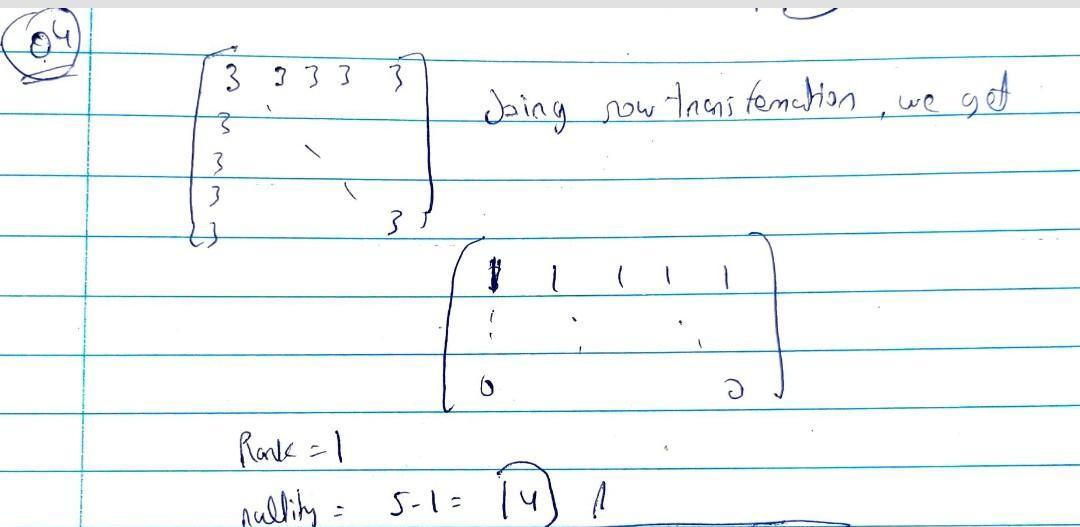 Q4
3 3 3 3 3
3
3
3
3 3
Using row transfemation, we get
1 1 1 1 1
0 0
Rank = 1
nullity = 5-1 = 4